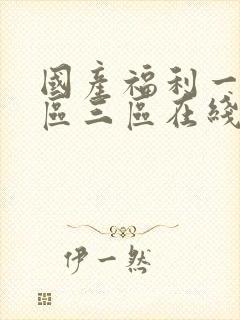 國產福利一
區三區在綫
伊一然